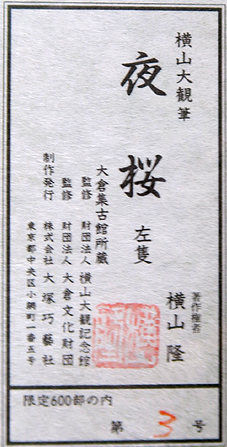 横山大観筆
夜桜
左隻
著作権者
横山隆
大倉集古館所蔵
監修 財団法人 横山大観記念館
監修 財団法人 大倉文化財団
制作発行 株式会社 大塚巧藝社
東京都中央区小網町一番五号
限定600部の内
第 3 号